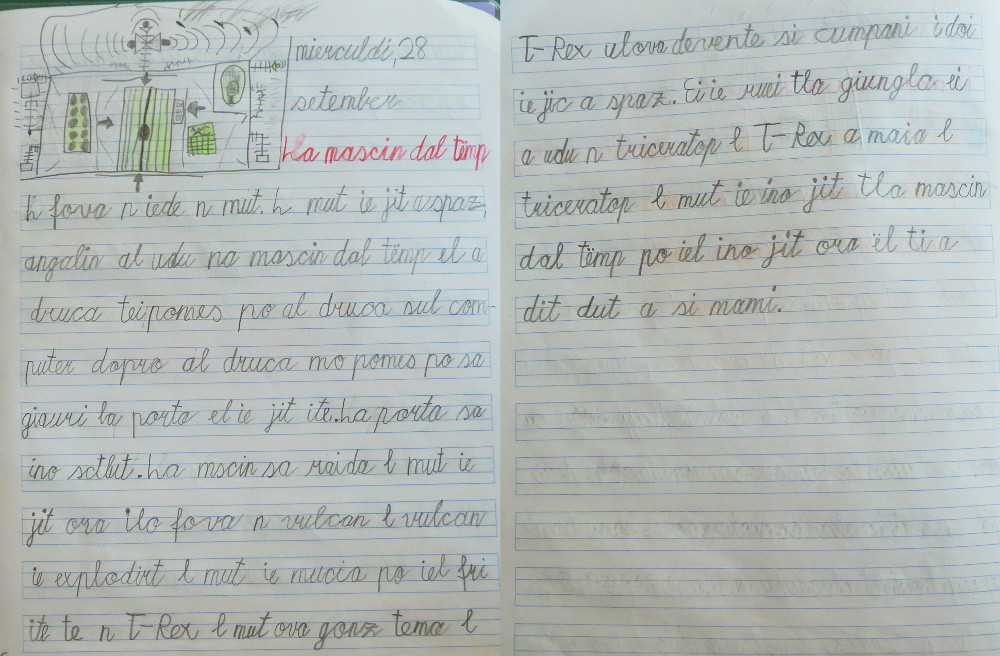 mierculdi, 28
setember
La mascin dal tëmp
L fova n iede n mut. L mut ie jit a spaz,
angalin al udu na mascin dal tëmp el a
druca teipomes po al druca sul com-
puter dopro al druca mo pomes po sa
giauri la porta el ie jit ite. La porta sa
ino sctlut. La mscin sa raida l mut ie
jit ora ilo fova n vulcan l vulcan
ie explodirt l mut ie mucia po iel fri
ite te n T-Rex l mut ova gonz tema l
T-Rex ulova devente si cumpani i doi
ie jic a spaz. Ei ie ruei tla giungla ei
a udu n triceratop l T-Rex a maia l
triceratop l mut ie ino jit tla mascin
dal tëmp po iel ino jit ora ël ti a
dit dut a si mami.